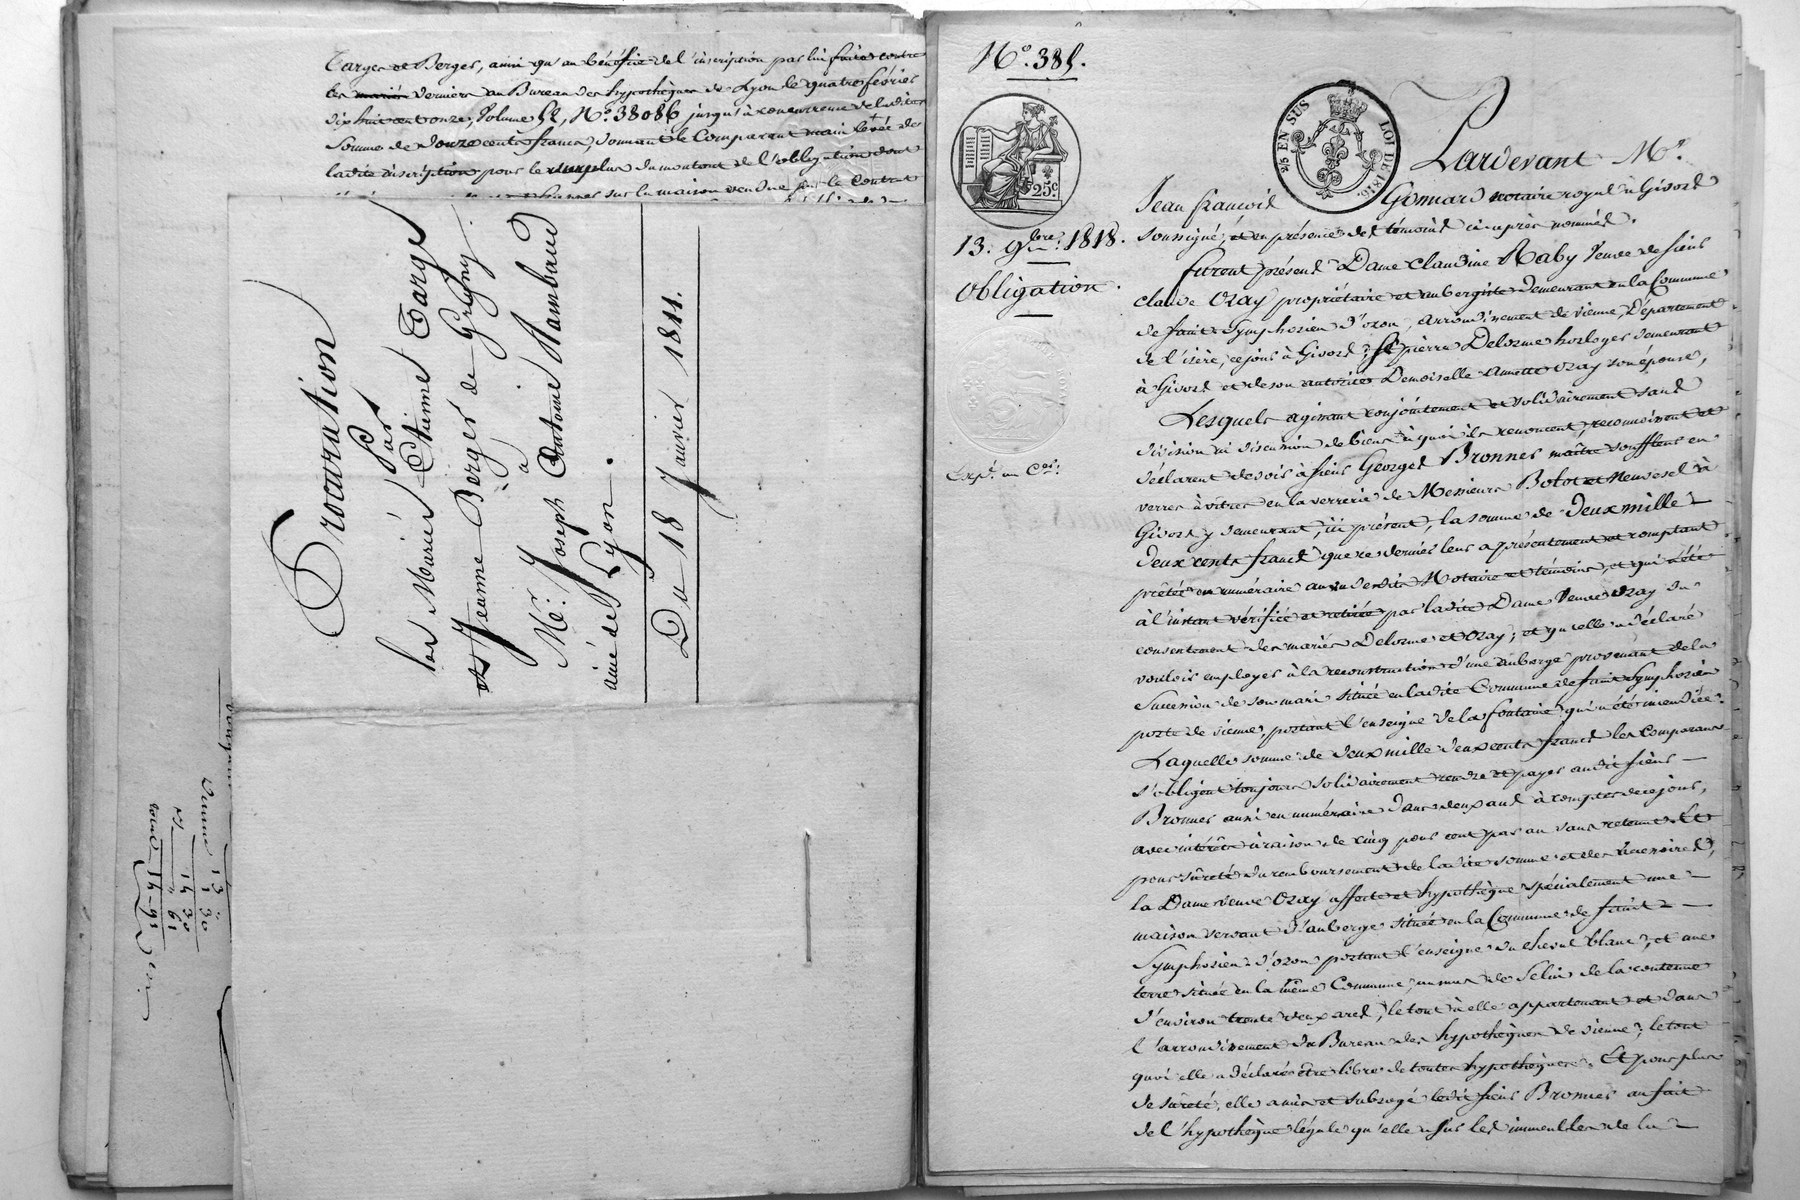 Targe et Berger, ainsi qu'au bénéfice de l'inscription par lui faite contre
les mariés derniers au Bureau des hypothèques de Lyon le quatre février
dix huit cent onze, Volume 52, N.° 38086 jusqu'à concurrence de la dite
somme de douze cents francs, donnant le Comparant main levée de
la dite inscription pour le surplus du montant de l'obligation dont
sur la maison vendue par le Contrat
Procuration
Par
les Mariés Etienne Targe
et Jeanne Berger de Grigny.
à
Mr. Joseph Antoine Rambaud
ainé de Lyon.
Du 18 Janvier 1811.
N.° 385.
25 EN SUS
LOI DE 1816.
25c
13. 9bre. 1818.
Obligation.
Exp.
Pardevant Me.
Jean françois Gomard notaire royal à Givors
soussigné, et en présence des témoins ci après nommés.
furent présens Dame Claudine Raby veuve de sieur
claude Ozay propriétaire et aubergiste demeurant en la Commune
de saint Symphorien d'ozon, arrondissement de vienne, Département
de l'isère, ce jour à Givors, Sr pierre Delorme horloger demeurant
à Givors et de son autorité Demoiselle Annette Ozay son épouse,
Lesquels agissant conjointement et solidairement sans
division ni discussion de biens à quoi ils renoncent, reconnoissent et
déclarent devoir à sieur Georges Bronner maître souffleur en
verres à vitres en la verrerie de Messieurs Bolot et Neuvesel à
Givors y demeurant, ici présent, la somme de deux mille
deux cents francs que ce dernier leur a présentement et comptant
prêtée en numéraire au vu desdits Notaire et témoins, et qui a été
à l'instant vérifiée et retirée par ladite Dame Veuve Ozay du
consentement des mariés Delorme et Ozay, et qu'elle a déclaré
vouloir employer à la reconstruction d'une auberge provenant de la
Succession de son mari située en ladite Commune de saint Symphorien
porte de vienne, portant l'enseigne de la fontaine, qui a été incendiée.
Laquelle somme de deux mille deux cents francs les Comparans
s'obligent toujours solidairement rendre et payer audit sieur
Bronner aussi en numéraire dans deux ans à compter de ce jour,
avec intérêts à raison de cinq pour cent par an sans retenue. Et
pour sûreté du remboursement de ladite somme et des accessoires,
la Dame veuve Ozay affecte et hypothèque spécialement une
maison servant d'auberge située en la Commune de saint
Symphorien d'ozon portant l'enseigne du cheval blanc, et une
terre située en la même Commune, au mas de Selin de la contenue
d'environ trente deux ares, le tout à elle appartenant et dans
l'arrondissement du Bureau des hypothèques de vienne, le tout
quoi elle a déclaré être libre de toutes hypothèques. Et pour plus
de sûreté, elle a mis et subrogé ledit sieur Bronner au fait
de l'hypothèque légale qu'elle a sur les immeubles de la